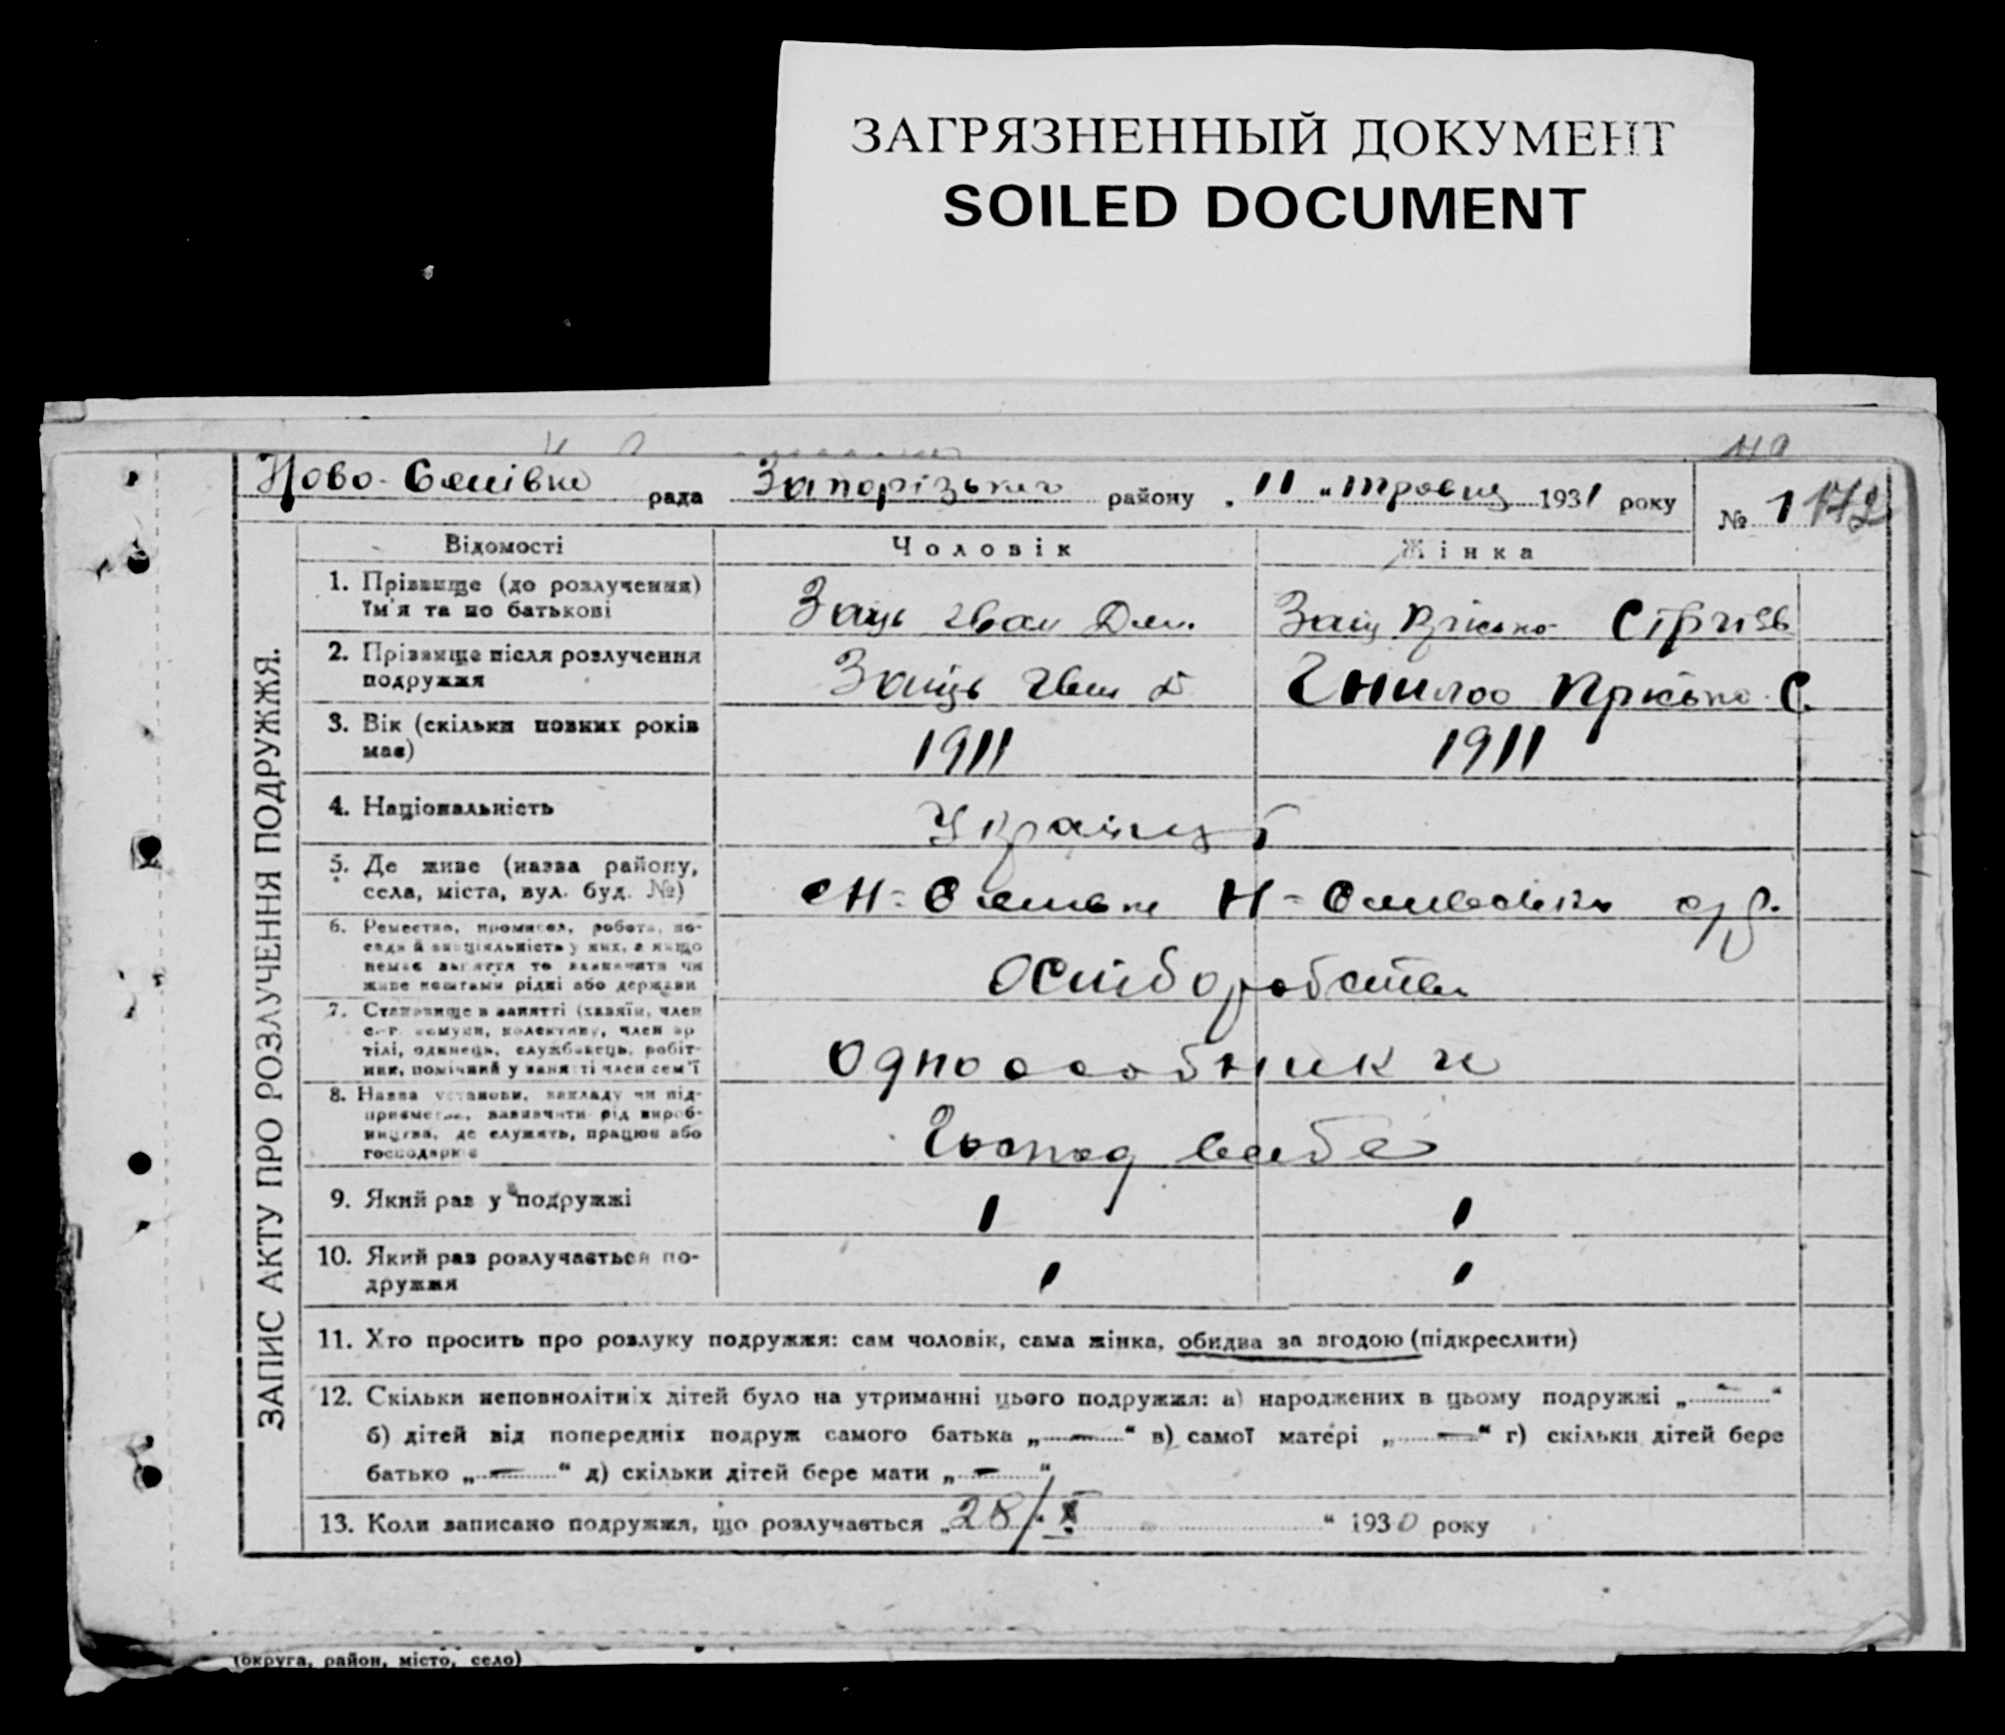 ЗАГРЯЗНЕННЫЙ ДОКУМЕНТ
SOILED DOCUMENT
рада Запорізького району „11" травня 1931 року
№ 1 172
ЗАПИС АКТУ ПРО РОЗЛУЧЕННЯ ПОДРУЖЖЯ.
Відомості Чоловік Жінка
1. Прізвище (до розлучення) їм'я та по батькові Заїць Іван Дем. Заїц Пріська
2. Прізвище після розлучення подружжя Заїць Іван Д Гнилоо Пріська С.
3. Вік (скільки повних років має) 1911 1911
4. Національність Українці
5. Де живе (назва району, села, міста, вул. буд. №)
6. Ремество, промисел, робота, посада й спеціяльність у них, а якщо немає заняття то зазначити чи живе коштами рідні або держави
7. Становище в занятті (хазяїн, член с.-г. комуни, колективу, член артілі, одинець, службовець, робітник, помічний у занятті член сем'ї Одноособники
8. Назва установи, закладу чи підприємства, зазначити рід виробництва, де служить, працює або господарює Господ
9. Який раз у подружжі 1 1
10. Який раз розлучається подружжя 1 1
11. Хто просить про розлуку подружжя: сам чоловік, сама жінка, обидва за згодою (підкреслити)
12. Скільки неповнолітніх дітей було на утриманні цього подружжя: а) народжених в цьому подружжі „—"
б) дітей від попередніх подруж самого батька „—" в) самої матері „—" г) скільки дітей бере
батько „—" д) скільки дітей бере мати „—"
13. Коли записано подружжя, що розлучається „28/X" 1930 року
(округа, район, місто, село)